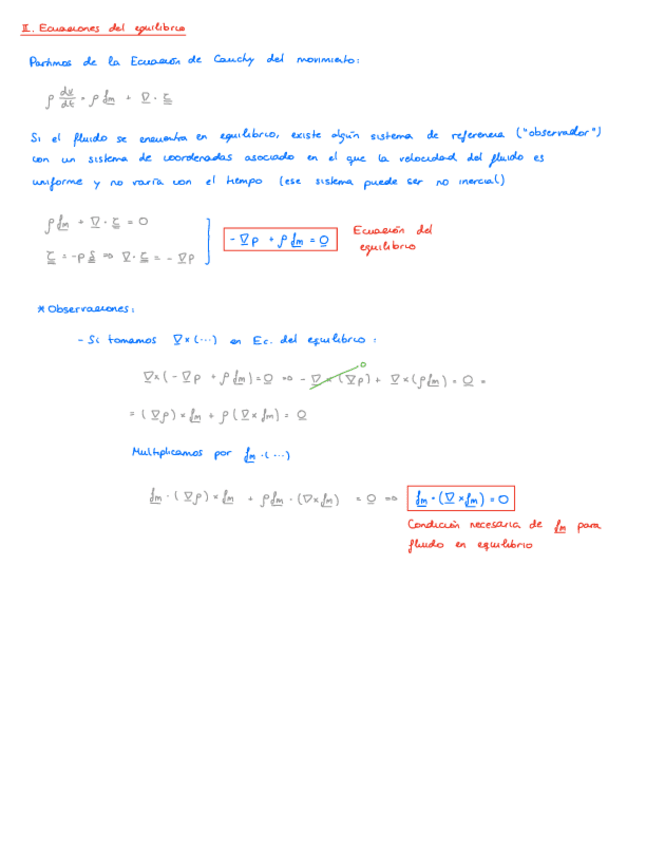 II. Ecuaciones del equilibrio
Partimos de la Ecuación de Cauchy del movimiento:
ρ dv/dt = ρ fm + ∇ · τ
Si el fluido se encuentra en equilibrio, existe algún sistema de referencia ("observador")
con un sistema de coordenadas asociado en el que la velocidad del fluido es
uniforme y no varía con el tiempo (ese sistema puede ser no inercial)
ρ fm + ∇ · τ = 0
τ = -p δ => ∇ · τ = - ∇p
- ∇p + ρ fm = 0
Ecuación del
equilibrio
* Observaciones:
- Si tomamos ∇ × (...) en Ec. del equilibrio:
∇ × (- ∇p + ρ fm) = 0 => - ∇ × (∇p) + ∇ × (ρ fm) = 0 =
0
= (∇ρ) × fm + ρ (∇ × fm) = 0
Multiplicamos por fm · (...)
fm · (∇ρ) × fm + ρ fm · (∇ × fm) = 0 => fm · (∇ × fm) = 0
Condición necesaria de fm para
fluido en equilibrio